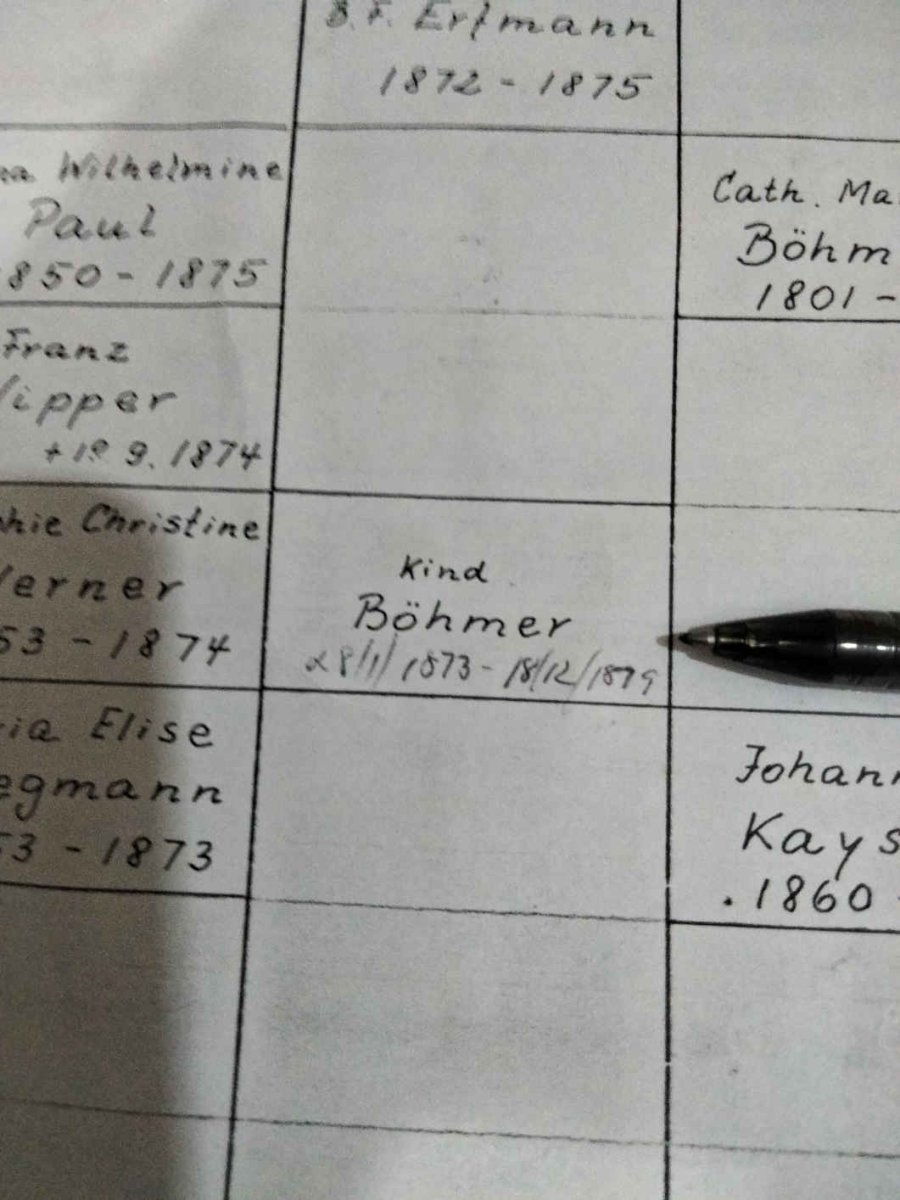 B. F. Ertmann
1872 - 1875
na Wilhelmine
Paul
1850 - 1875
Cath. Ma
Böhm
1801 -
Franz
ipper
9. 1874
hie Christine
erner
53 - 1874
Kind
Böhmer
1873 - 18/12/1879
ia Elise
egmann
53 - 1873
Johann
Kays
. 1860 -